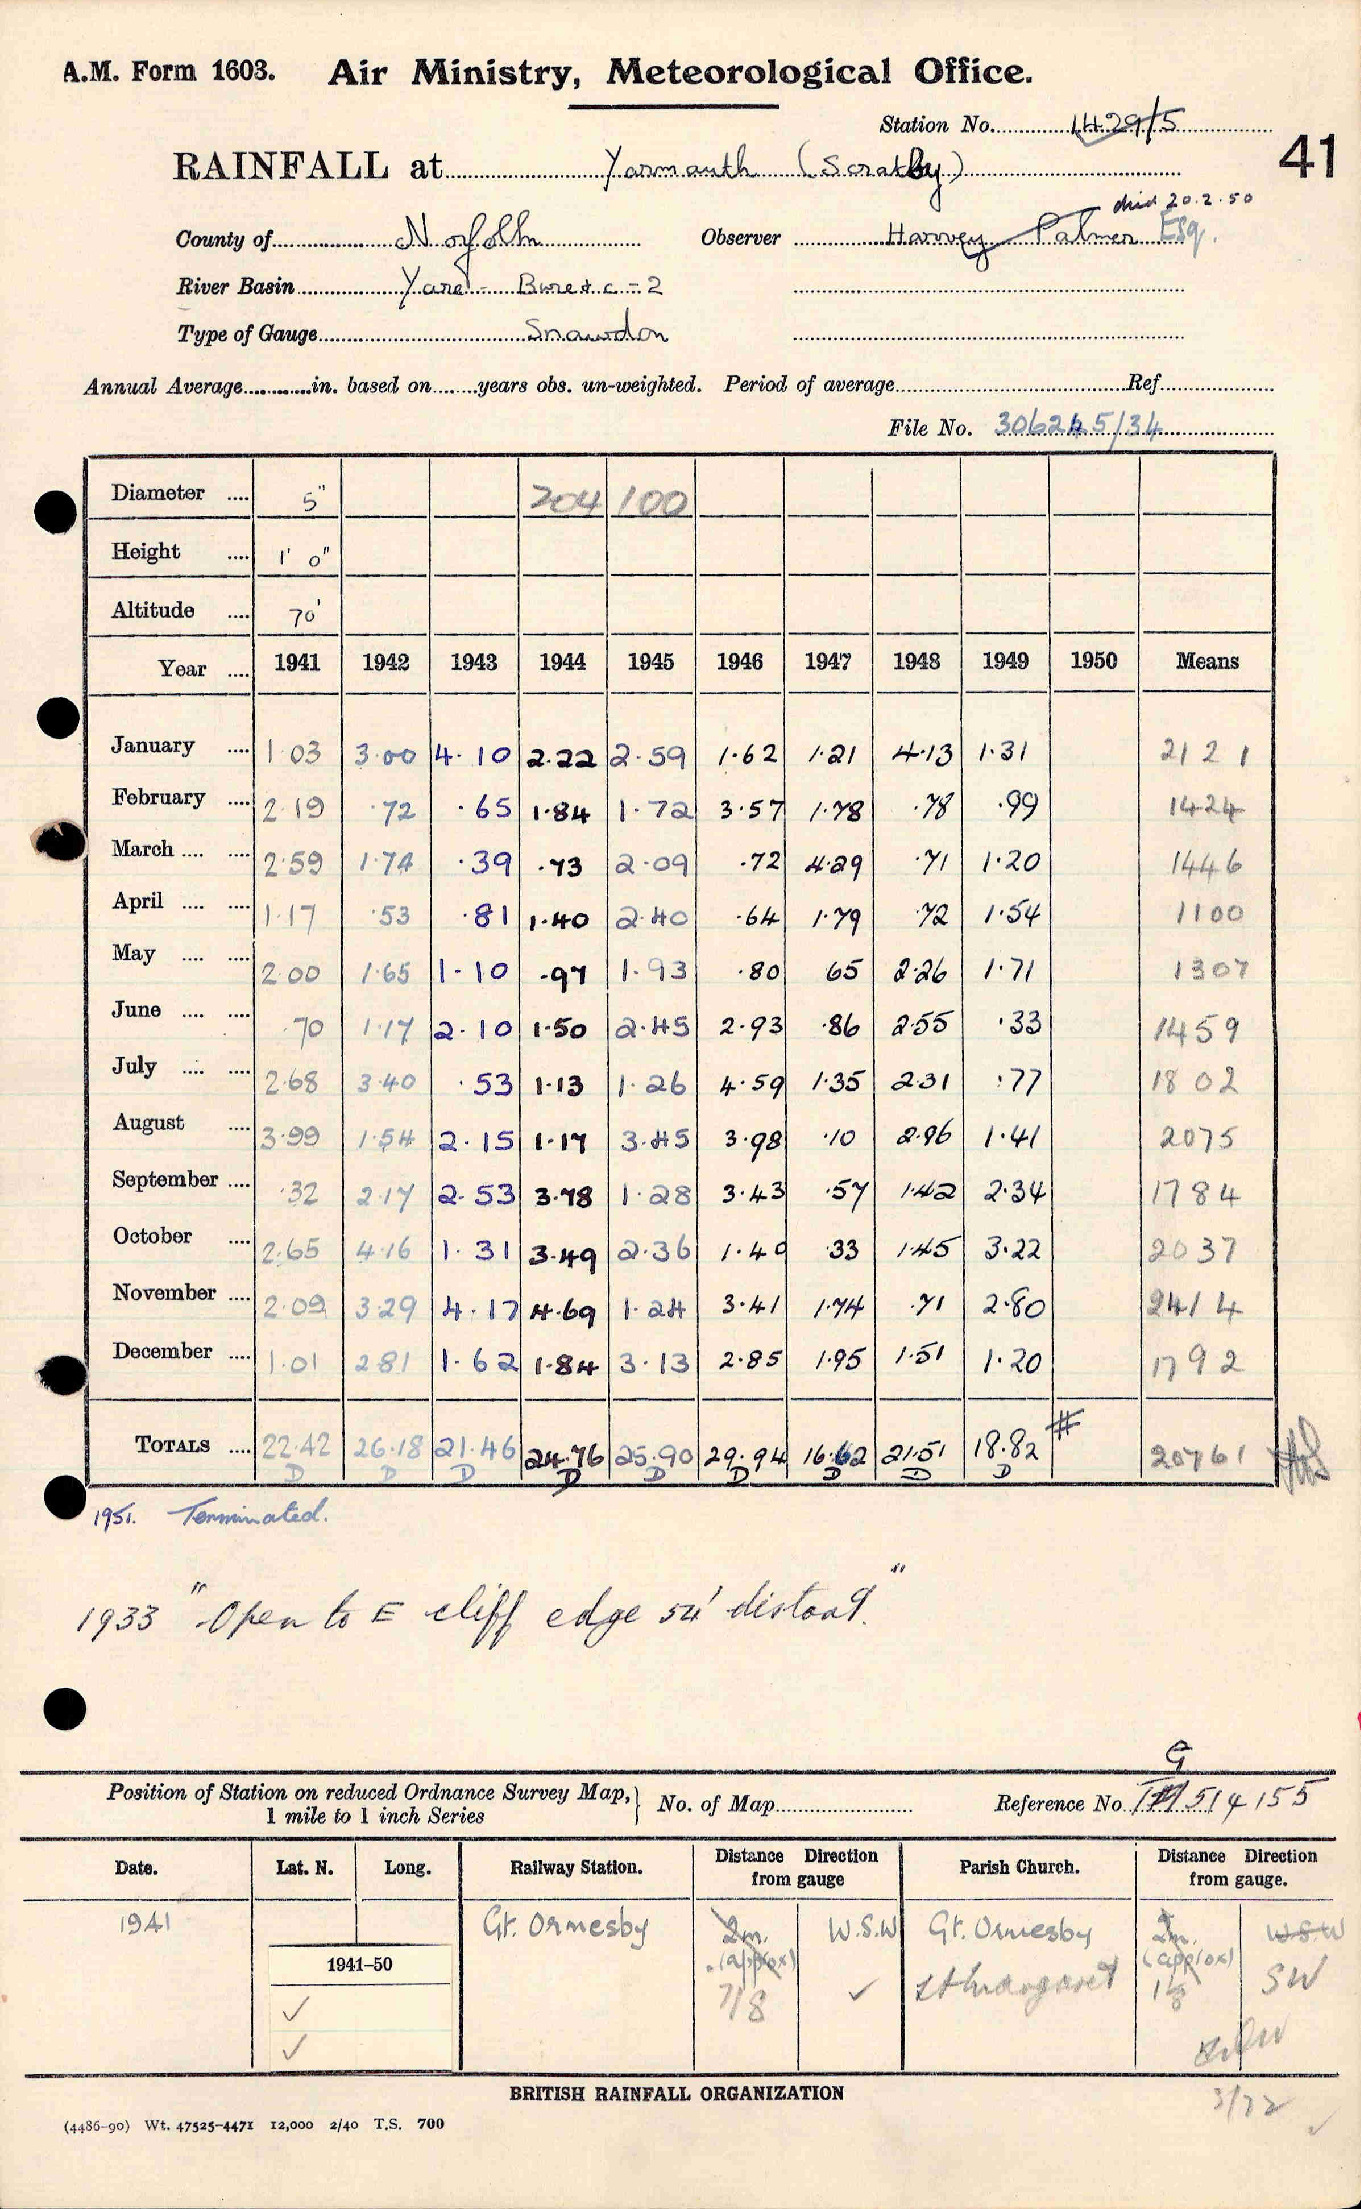 A.M. Form 1603. Air Ministry, Meteorological Office.
Station No. 1429/5
41
RAINFALL at Yarmouth (Scratby)
died 20.2.50
County of Norfolk Observer Harvey Palmer Esq.
River Basin Yare - Bure &c - 2
Type of Gauge Snowdon
Annual Average in. based on years obs. un-weighted. Period of average Ref.
File No. 306245/34
Diameter 5" 204 100
Height 1' 0"
Altitude 70'
Year 1941 1942 1943 1944 1945 1946 1947 1948 1949 1950 Means
January 1.03 3.00 4.10 2.22 2.59 1.62 1.21 4.13 1.31 2121
February 2.19 .72 .65 1.84 1.72 3.57 1.78 .78 .99 1424
March 2.59 1.74 .39 .73 2.09 .72 4.29 .71 1.20 1446
April 1.17 .53 .81 1.40 2.40 .64 1.79 .72 1.54 1100
May 2.00 1.65 1.10 .97 1.93 .80 65 2.26 1.71 1307
June .70 1.17 2.10 1.50 2.45 2.93 .86 2.55 .33 1459
July 2.68 3.40 .53 1.13 1.26 4.59 1.35 2.31 .77 1802
August 3.99 1.54 2.15 1.17 3.45 3.98 .10 2.96 1.41 2075
September .32 2.17 2.53 3.78 1.28 3.43 .57 1.42 2.34 1784
October 2.65 4.16 1.31 3.49 2.36 1.40 .33 1.45 3.22 2037
November 2.09 3.29 4.17 4.69 1.24 3.41 1.74 .71 2.80 2414
December 1.01 2.81 1.62 1.84 3.13 2.85 1.95 1.51 1.20 1792
TOTALS 22.42 26.18 21.46 24.76 25.90 29.94 16.62 21.51 18.82 # 20761
D D D D D D D D D
1951. Terminated.
1933 "Open to E cliff edge 54' distant."
G
Position of Station on reduced Ordnance Survey Map, 1 mile to 1 inch Series } No. of Map Reference No. TM 514155
Date. Lat. N. Long. Railway Station. Distance from gauge Direction Parish Church. Distance from gauge. Direction
1941 Gt. Ormesby 2m. (approx) W.S.W Gt. Ormesby 2m. (approx) W.S.W
1941-50
✓ 7/8 ✓ St Margaret 1 1/8 SW
✓
3/72 ✓
BRITISH RAINFALL ORGANIZATION
(4486-90) Wt. 47525-4471 12,000 2/40 T.S. 700